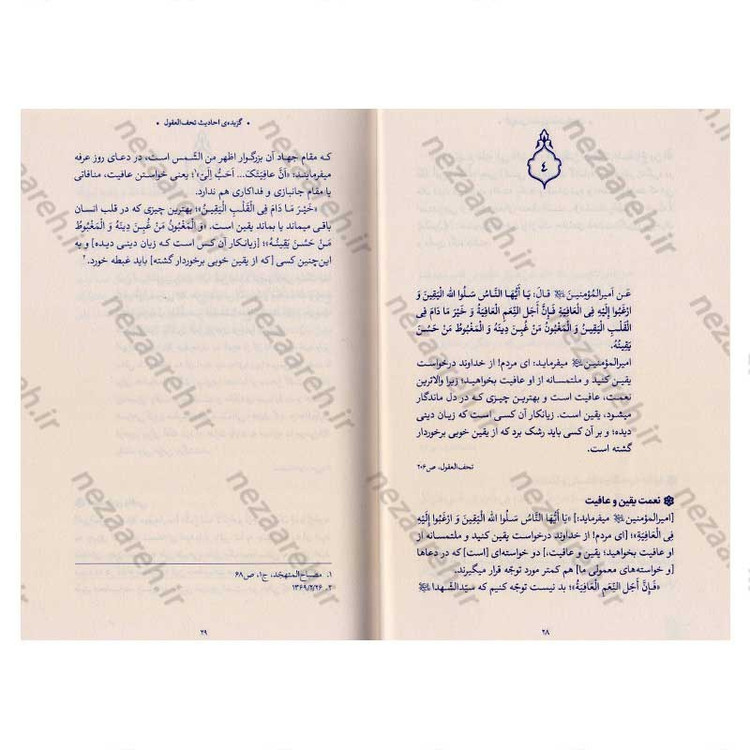 ٤
عَن اَمیرِالمُؤمنین قالَ: یَا أَیُّهَا النَّاسُ سَلُوا اللهَ الْیَقِینَ وَ
ارْغَبُوا إِلَیْهِ فِی الْعَافِیَةِ فَإِنَّ أَجَلَّ النِّعَمِ الْعَافِیَةُ وَ خَیْرَ مَا دَامَ فِی
الْقَلْبِ الْیَقِینُ وَ الْمَغْبُونُ مَنْ غُبِنَ دِینَهُ وَ الْمَغْبُوطُ مَنْ حَسُنَ
یَقِینُهُ.
امیرالمؤمنین میفرماید: ای مردم! از خداوند درخواست
یقین کنید و ملتمسانه از او عافیت بخواهید؛ زیرا والاترین
نعمت، عافیت است و بهترین چیزی که در دل ماندگار
میشود، یقین است. زیانکار آن کسی است که زیان دینی
دیده؛ و بر آن کسی باید رشک برد که از یقین خوبی برخوردار
گشته است.
تحف‌العقول، ص۲۰۶
نعمت یقین و عافیت
[امیرالمؤمنین میفرماید:] «یَا أَیُّهَا النَّاسُ سَلُوا اللهَ الْیَقِینَ وَ ارْغَبُوا إِلَیْهِ
فِی الْعَافِیَةِ»؛ [ای مردم! از خداوند درخواست یقین کنید و ملتمسانه از
او عافیت بخواهید؛ یقین و عافیت،] دو خواسته‌ای [است] که در دعاها
[و خواسته‌های معمولی ما] هم کمتر مورد توجّه قرار میگیرند.
«فَإِنَّ أَجَلَّ النِّعَمِ الْعَافِیَةُ»؛ بد نیست توجّه کنیم که سیّدالشّهدا
۲۸
• گزیده‌ی احادیث تحف‌العقول •
که مقام جهاد آن بزرگوار اظهر من الشّمس است، در دعای روز عرفه
میفرمایند: «أَنَّ عافِیَتَکَ... اَحَبُّ اِلَیَّ»۱؛ یعنی خواستن عافیت، منافاتی
با مقام جانبازی و فداکاری هم ندارد.
«خَیْرَ مَا دَامَ فِی الْقَلْبِ الْیَقِینُ»؛ بهترین چیزی که در قلب انسان
باقی میماند یا بماند یقین است. «وَ الْمَغْبُونُ مَنْ غُبِنَ دِینَهُ وَ الْمَغْبُوطُ
مَنْ حَسُنَ یَقِینُهُ»؛ [زیانکار آن کس است که زیان دینی دیده] و به
این‌چنین کسی [که از یقین خوبی برخوردار گشته] باید غبطه خورد.۲
۱. مصباح‌المتهجّد، ج۱، ص۶۸
۲. ۱۳۶۹/۲/۲۶
۲۹
nezaareh.ir